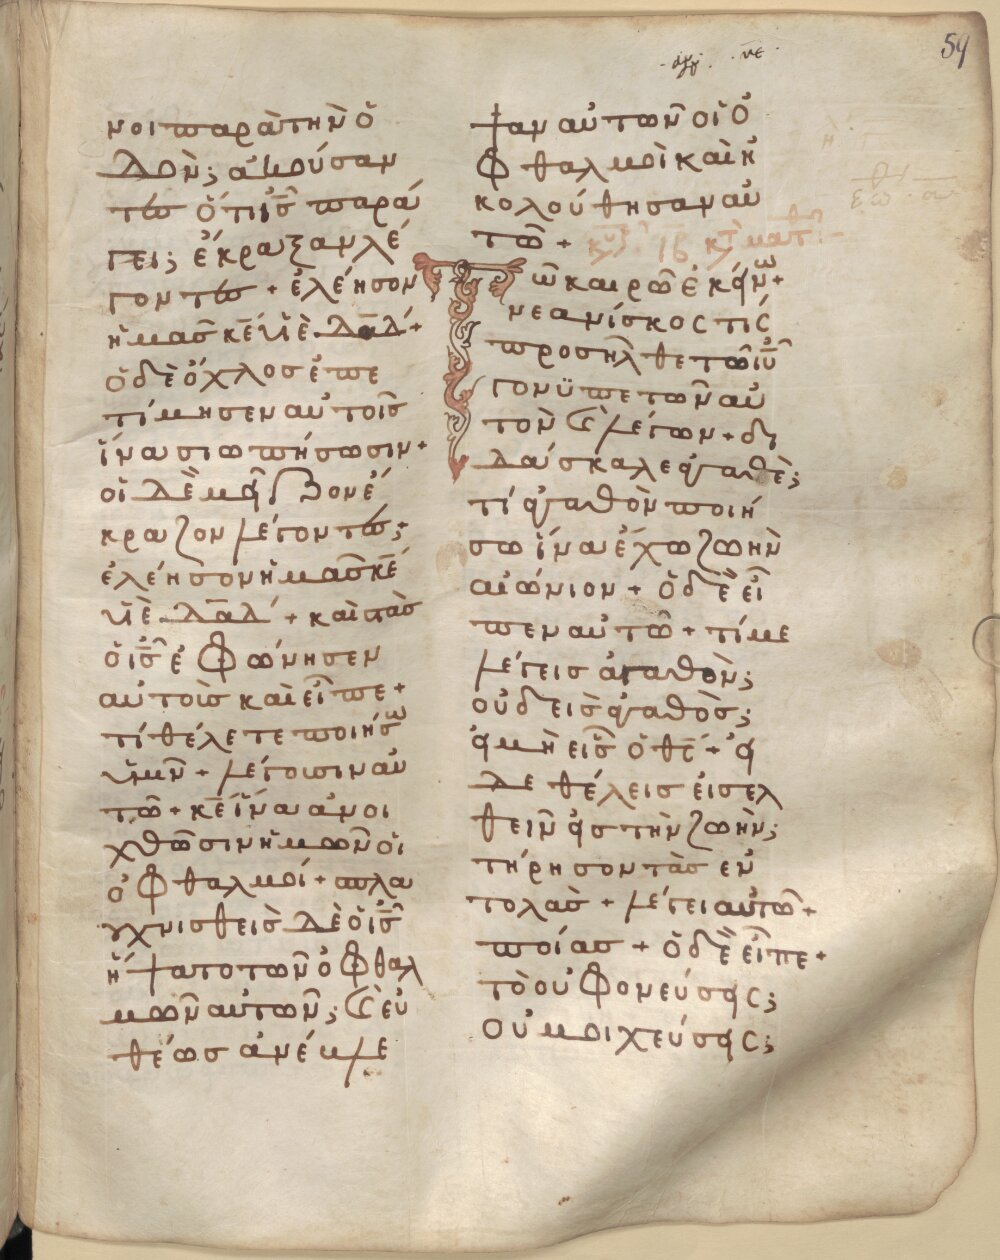 59
νοι παρὰ τὴν ὁ
δὸν; ἀκούσαν
τες ὅτι ἰς̅ παρά
γει; ἔκραξαν λέ
γοντες + ἐλέησον
ἡμᾶς κε̅ υἱὲ δα̅δ +
ὁ δὲ ὄχλος ἐπε
τίμησεν αὐτοῖς
ἵνα σιωπήσωσιν +
οἱ δὲ μεῖζον ἔ
κραζον λέγοντες;
ἐλέησον ἡμᾶς κε̅
υἱὲ δα̅δ + καὶ στὰς
ὁ ἰς̅ ἐφώνησεν
αὐτοὶς καὶ εἶπε +
τί θέλετε ποιήσω
ὑμῖν + λέγουσιν αὐ
τῶ + κε̅ ἵνα ἀνοι
χθῶσιν ἡμῶν οἱ
ὀφθαλμοί + σπλα
γχνισθεὶς δὲ ὁ ἰς̅
ἥψατο τῶν ὀφθαλ
μῶν αὐτῶν; καὶ εὐ
θέως ἀνέβλε
ψαν αὐτῶν οἱ ὀ
φθαλμοὶ καὶ ἠ
κολούθησαν αὐ
τῶ +
Τῶ καιρῶ ἐκείνω +
νεανίσκος τίς
προσῆλθε τῶ ἰυ̅
γονϋπετῶν αὐ
τὸν καὶ λέγων + δι
δάσκαλε ἀγαθὲ;
τί ἀγαθὸν ποιή
σω ἵνα ἔχω ζωὴν
αἰώνιον + ὁ δὲ εἶ
πεν αὐτῶ + τί με
λέγεις ἀγαθὸν;
οὐδεὶς ἀγαθὸς;
εἰ μὴ εἷς ὁ θς̅ + εἰ
δε θέλεις εἰσελ
θεῖν εἰς τὴν ζωὴν;
τήρησον τὰς ἐν
τολὰς + λέγει αὐτῶ +
ποίας + ὁ δὲ εἶπε +
τὸ οὐ φονεύσεις;
οὐ μοιχεύσεις;